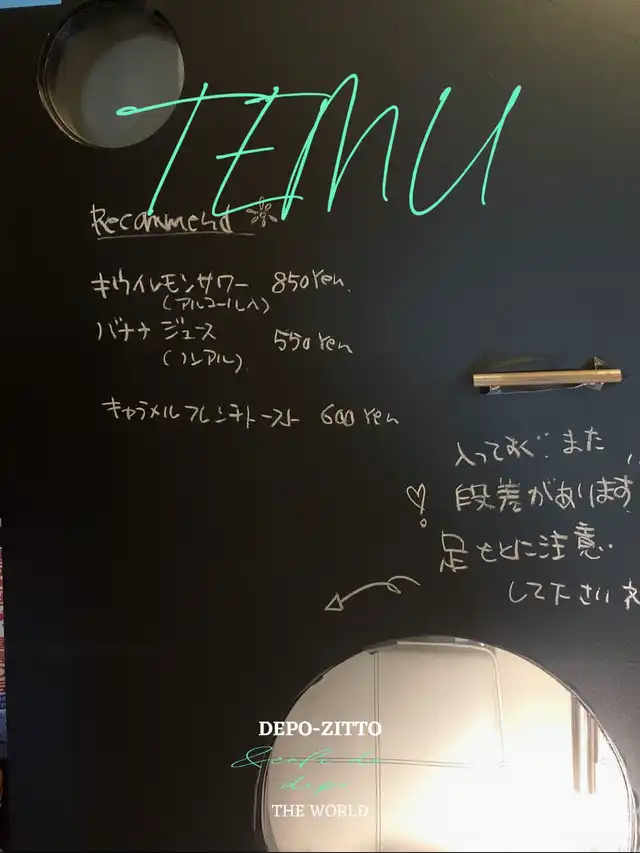 TEMU
Recommend
キウイレモンサワー 850Yen.
(アルコール入)
バナナジュース 550Yen
(ノンアル)
キャラメルフレンチトースト 600Yen
入ってすぐ また
段差があります
足もとに注意
して下さいネ
DEPO-ZITTO
THE WORLD